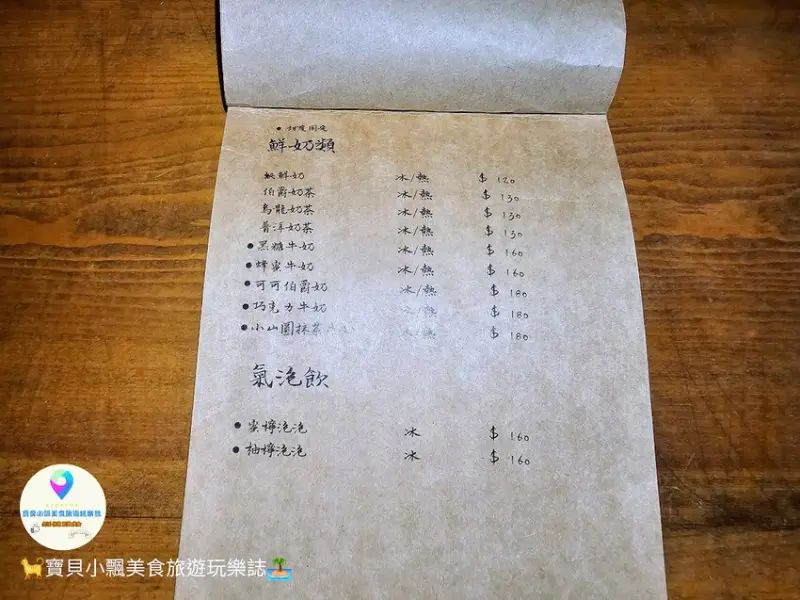 ● 甜度固定
鮮奶類
純鮮奶 冰/熱 $ 120
伯爵奶茶 冰/熱 $ 130
烏龍奶茶 冰/熱 $ 130
普洱奶茶 冰/熱 $ 130
● 黑糖牛奶 冰/熱 $ 160
● 蜂蜜牛奶 冰/熱 $ 160
● 可可伯爵奶 冰/熱 $ 180
● 巧克力牛奶 冰/熱 $ 180
● 小山園抹茶 冰/熱 $ 180
氣泡飲
● 蜜檸泡泡 冰 $ 160
● 柚檸泡泡 冰 $ 160
寶貝小飄美食旅遊玩樂誌